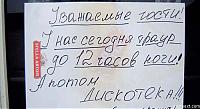 Уважаемые гости!
У нас сегодня траур
до 12 часов ночи!
А потом
Дискотека!!!